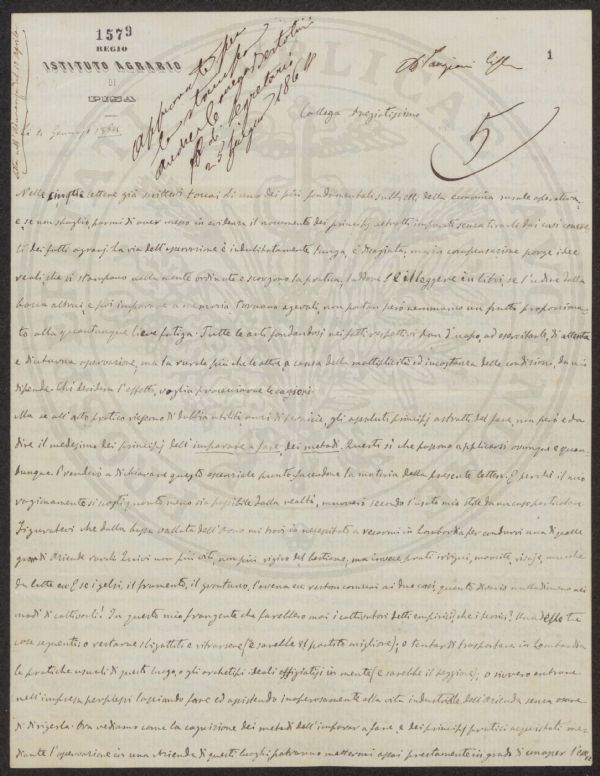 1579
REGIO
ISTITUTO AGRARIO
DI
PISA
1
approvato per
la stampa
Collega Bertolini
Segretario
Giugno 186
Collega pregiatissimo
5
Nelle cinque lettere già scritte di uno dei più fondamentali subbietti della economia rurale operativa,
e, se non sbaglio, parmi di aver messo in evidenza il nocumento dei principj astratti imparati senza tirarli dai casi concre-
ti dei fatti agrarj. La via dell'osservazione è indubitatamente lunga, e disagiata, ma in compensazione porge idee
reali, che si stampano nella mente ordinate e scorgono la pratica, laddove l'è il leggere in libri, se l'udire dalla
bocca altrui, e poi imparare a memoria tornano agevoli, non portan però nemmanco un frutto proporziona-
to alla quantunque lieve fatiga. Tutte le arti fondandosi nei fatti respettivi han d'uopo, ad esercitarle, di attenta
e diuturna osservazione, ma la rurale più che le altre a causa della moltiplicità ed incostanza delle condizioni, da cui
dipende. Chi desidera l'effetto, voglia procacciarne le cagioni.
Ma se all'atto pratico riescono di dubbia utilità anzi di pernicie, gli assoluti principj astratti del fare, non però è da
dire il medesimo dei principj dell'imparare a fare, dei metodi. Questi sì che possono applicarsi ovunque e quan-
dunque. Prenderò a dichiarare questo essenziale punto facendone la materia della presente lettera. E perchè il mio
ragionamento si scosti quanto meno sia possibile dalla realtà, muoverò secondo l'usato mio stile da un caso particolare
Figuratevi che dalla bassa vallata dell'Arno mi trovi in necessità a recarmi in Lombardia per condurvi una di quelle
grandi Aziende rurali. Quivi non più viti, non più rigiro del bestiame, ma invece prati irrigui, marcite, risaje, vacche
da latte ec. E se i gelsi, il frumento, il granturco, l'avena ec. restan comuni ai due casi, quanta diversità nulladimeno nei
modi di coltivarli! In questo mio frangente che farebbero mai i coltivatori detti empirici, che i teorici? Una delle tre
cose seguenti: o restarne sbigottiti e ritrarsene (e sarebbe il partito migliore); o tentar di trasportare in Lombardia
le pratiche usuali di questi luoghi, o gli archetipi ideali effigiatisi in mente (e sarebbe il peggiore); o sivvero entrare
nell'impresa perplessi lasciando fare ed assistendo inoperosamente alla vita industriale dell'azienda senza osare
di dirigerla. Ora vediamo come la cognizione dei metodi dell'imparar a fare, e dei principj pratici acquistati me-
diante l'osservazione in una Azienda di questi luoghi potranno mettermi assai prestamente in grado di